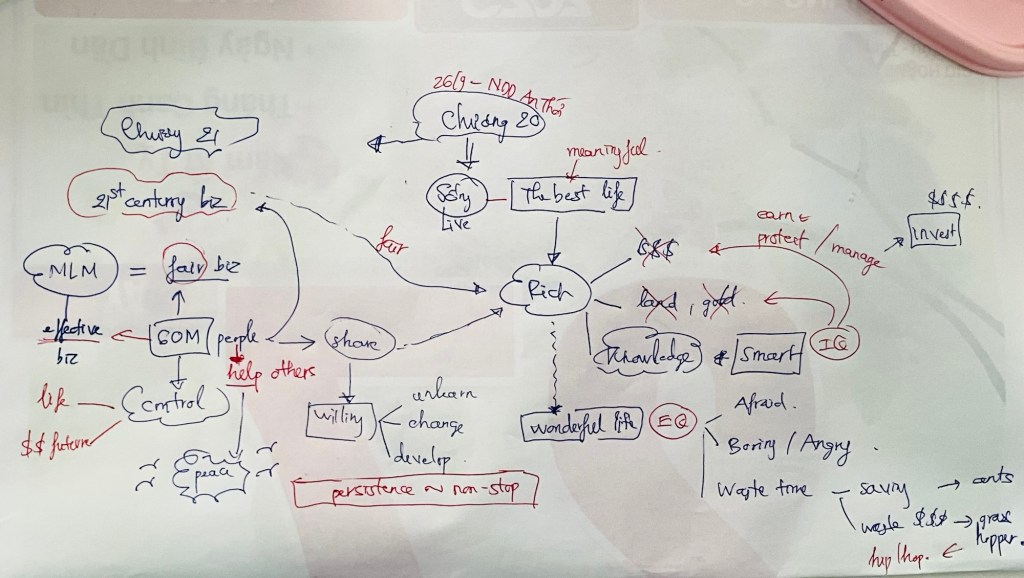 26/9 - NQD An Thới
Chương 20
Chương 21
meaningful
21st century biz
Story
Live
The best life
$$$$.
invest
earn &
protect / manage
fair
$$$
MLM = fair biz
Rich
land, gold.
effective
biz
60M people
share
knowledge & smart
IQ
help others
life
control
$$ future
willing
unlearn
change
develop.
wonderful life
EQ
Afraid.
Boring / Angry
peace
persistence ~ non-stop
Waste time - saving → ants
waste $$$ → grass
hopper.
hip/hop. ←